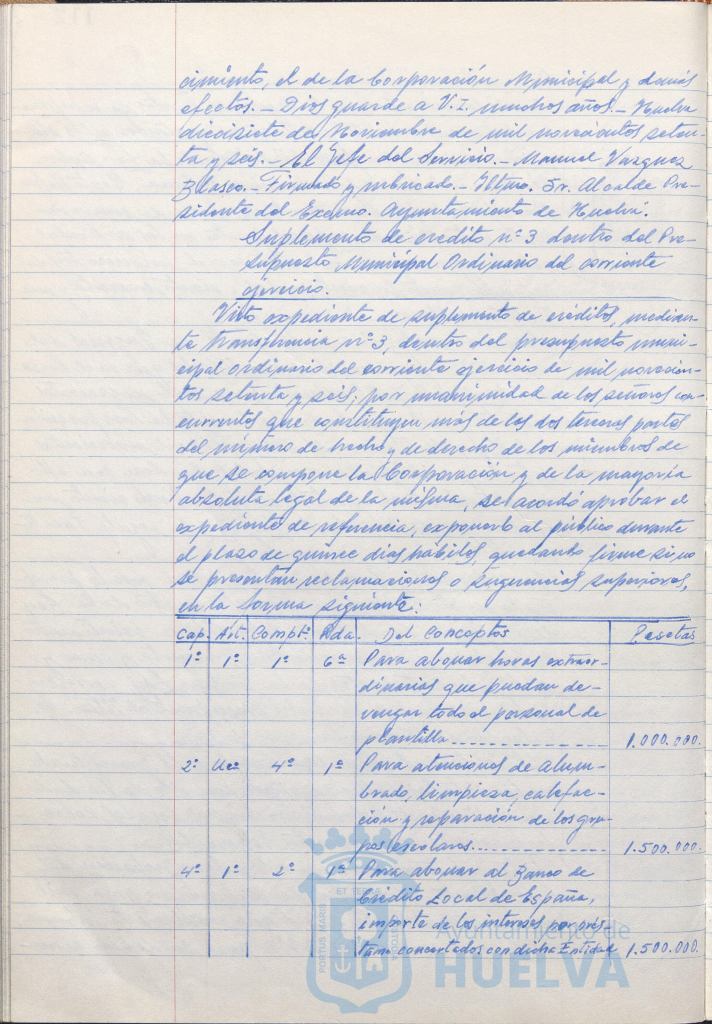 cimiento, el de la Corporación Municipal y demás
efectos.- Dios guarde a V.I. muchos años.- Huelva
diecisiete de Noviembre de mil novecientos seten-
ta y seis.- El Jefe del Servicio.- Manuel Vazquez
Blasco.- Firmado y rubricado.- Iltmo. Sr. Alcalde Pre-
sidente del Excmo. Ayuntamiento de Huelva.
Suplemento de credito nº 3 dentro del Pre-
supuesto Municipal Ordinario del corriente
ejercicio.
Visto expediente de suplemento de créditos, median-
te transferencia nº 3, dentro del presupuesto muni-
cipal ordinario del corriente ejercicio de mil novecien-
tos setenta y seis; por unanimidad de los señores con-
currentes que constituyen más de las dos terceras partes
del número de hecho y de derecho de los miembros de
que se compone la Corporación y de la mayoría
absoluta legal de la misma, se acordó aprobar el
expediente de referencia, exponerlo al público durante
el plazo de quince dias hábiles, quedando firme si no
se presentan reclamaciones o sugerencias superiores,
en la forma siguiente:
Cap. Art. Compt. Pda. Del Conceptos Pesetas
1º 1º 1º 6ª Para abonar horas extraor-
dinarias que puedan de-
vengar todo el personal de
plantilla............ 1.000.000.
2º Uco 4º 1ª Para atenciones de alum-
brado, limpieza, calefac-
ción y reparación de los gru-
pos escolares............ 1.500.000.
4º 1º 2º 1ª Para abonar al Banco de
Crédito Local de España,
importe de los intereses por prés-
tamo concertados con dicha Entidad 1.500.000.
PORTUS MARIS ET TERRAE CUSTODIA
Ayuntamiento de
HUELVA